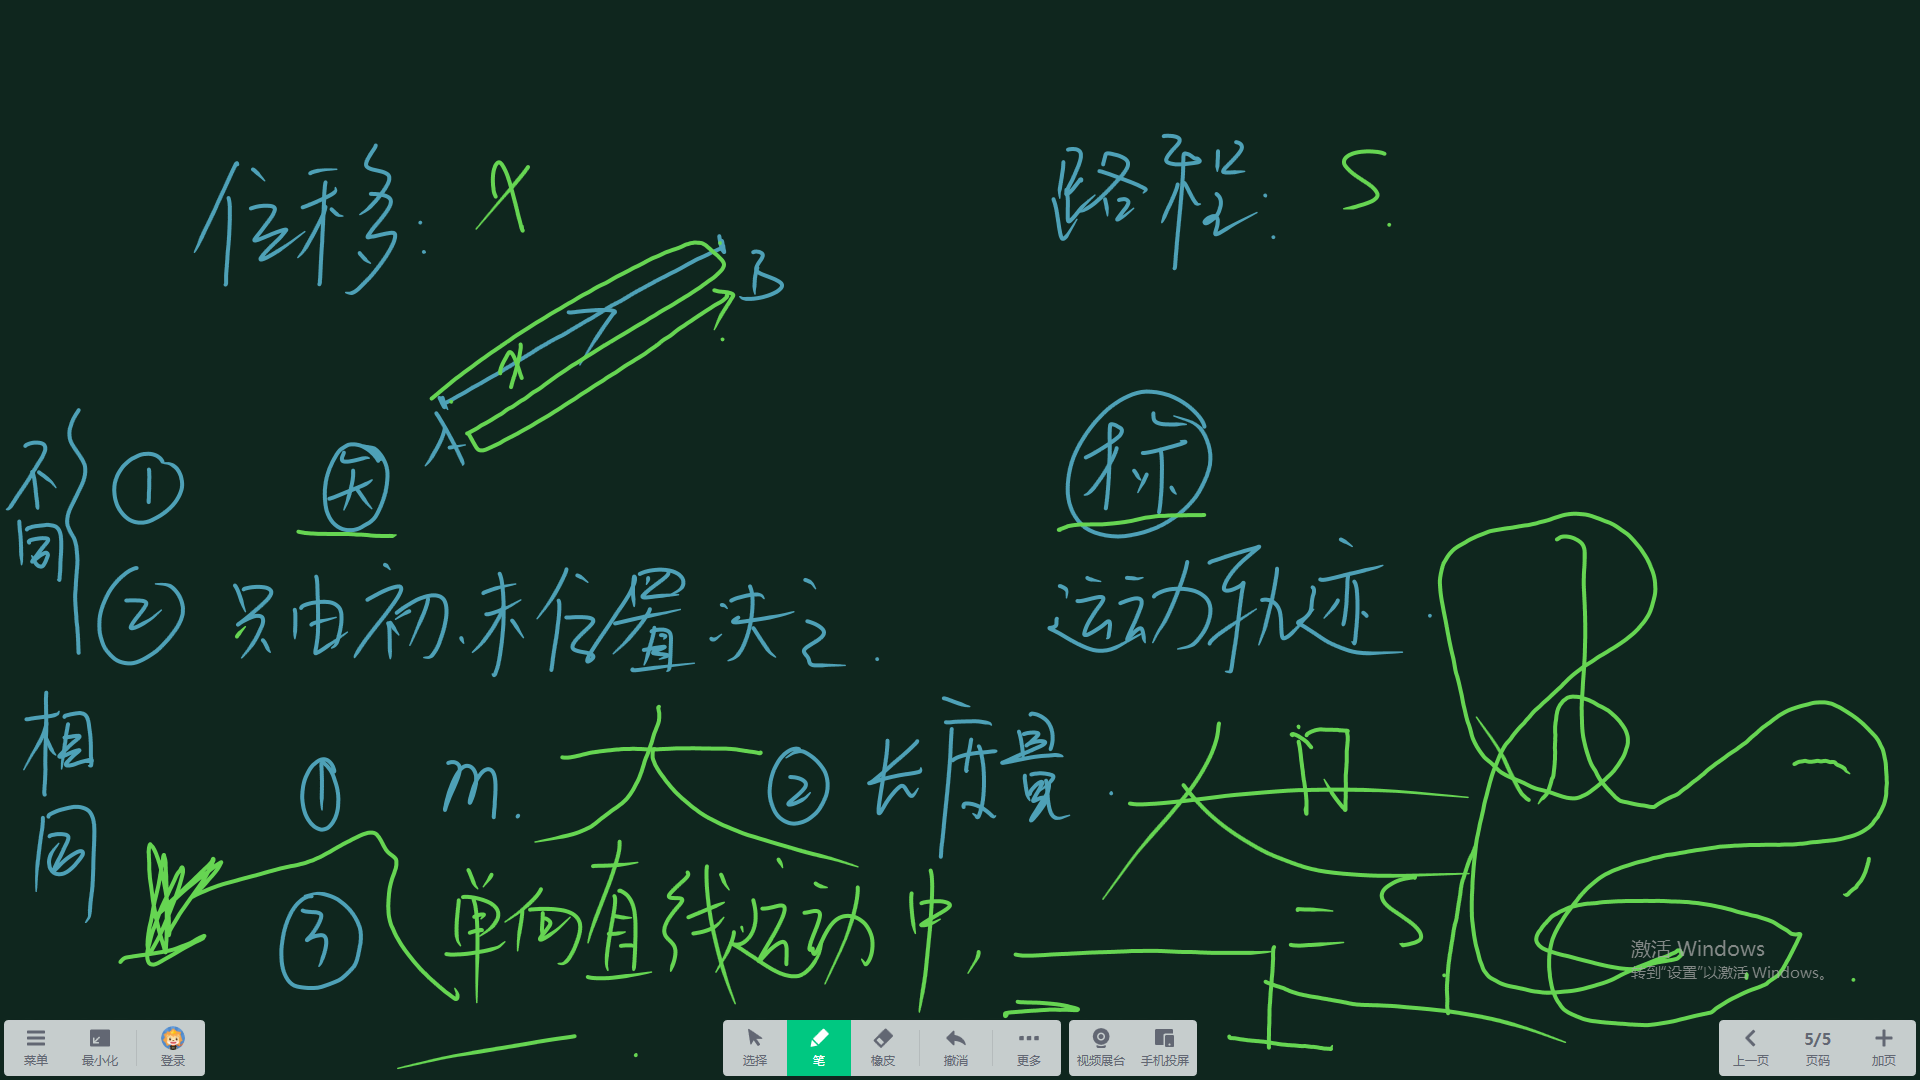 位移: x
路程: S.
B
x
A
不同
① 因
标
② 只由初、末位置、决定.
运动轨迹.
相同
① m.
② 长度量.
大门
③ 单向直线运动中,
= S
激活 Windows
转到“设置”以激活 Windows。
菜单 最小化 登录
选择 笔 橡皮 撤消 更多
视频展台 手机投屏
上一页 5/5 页码 加页